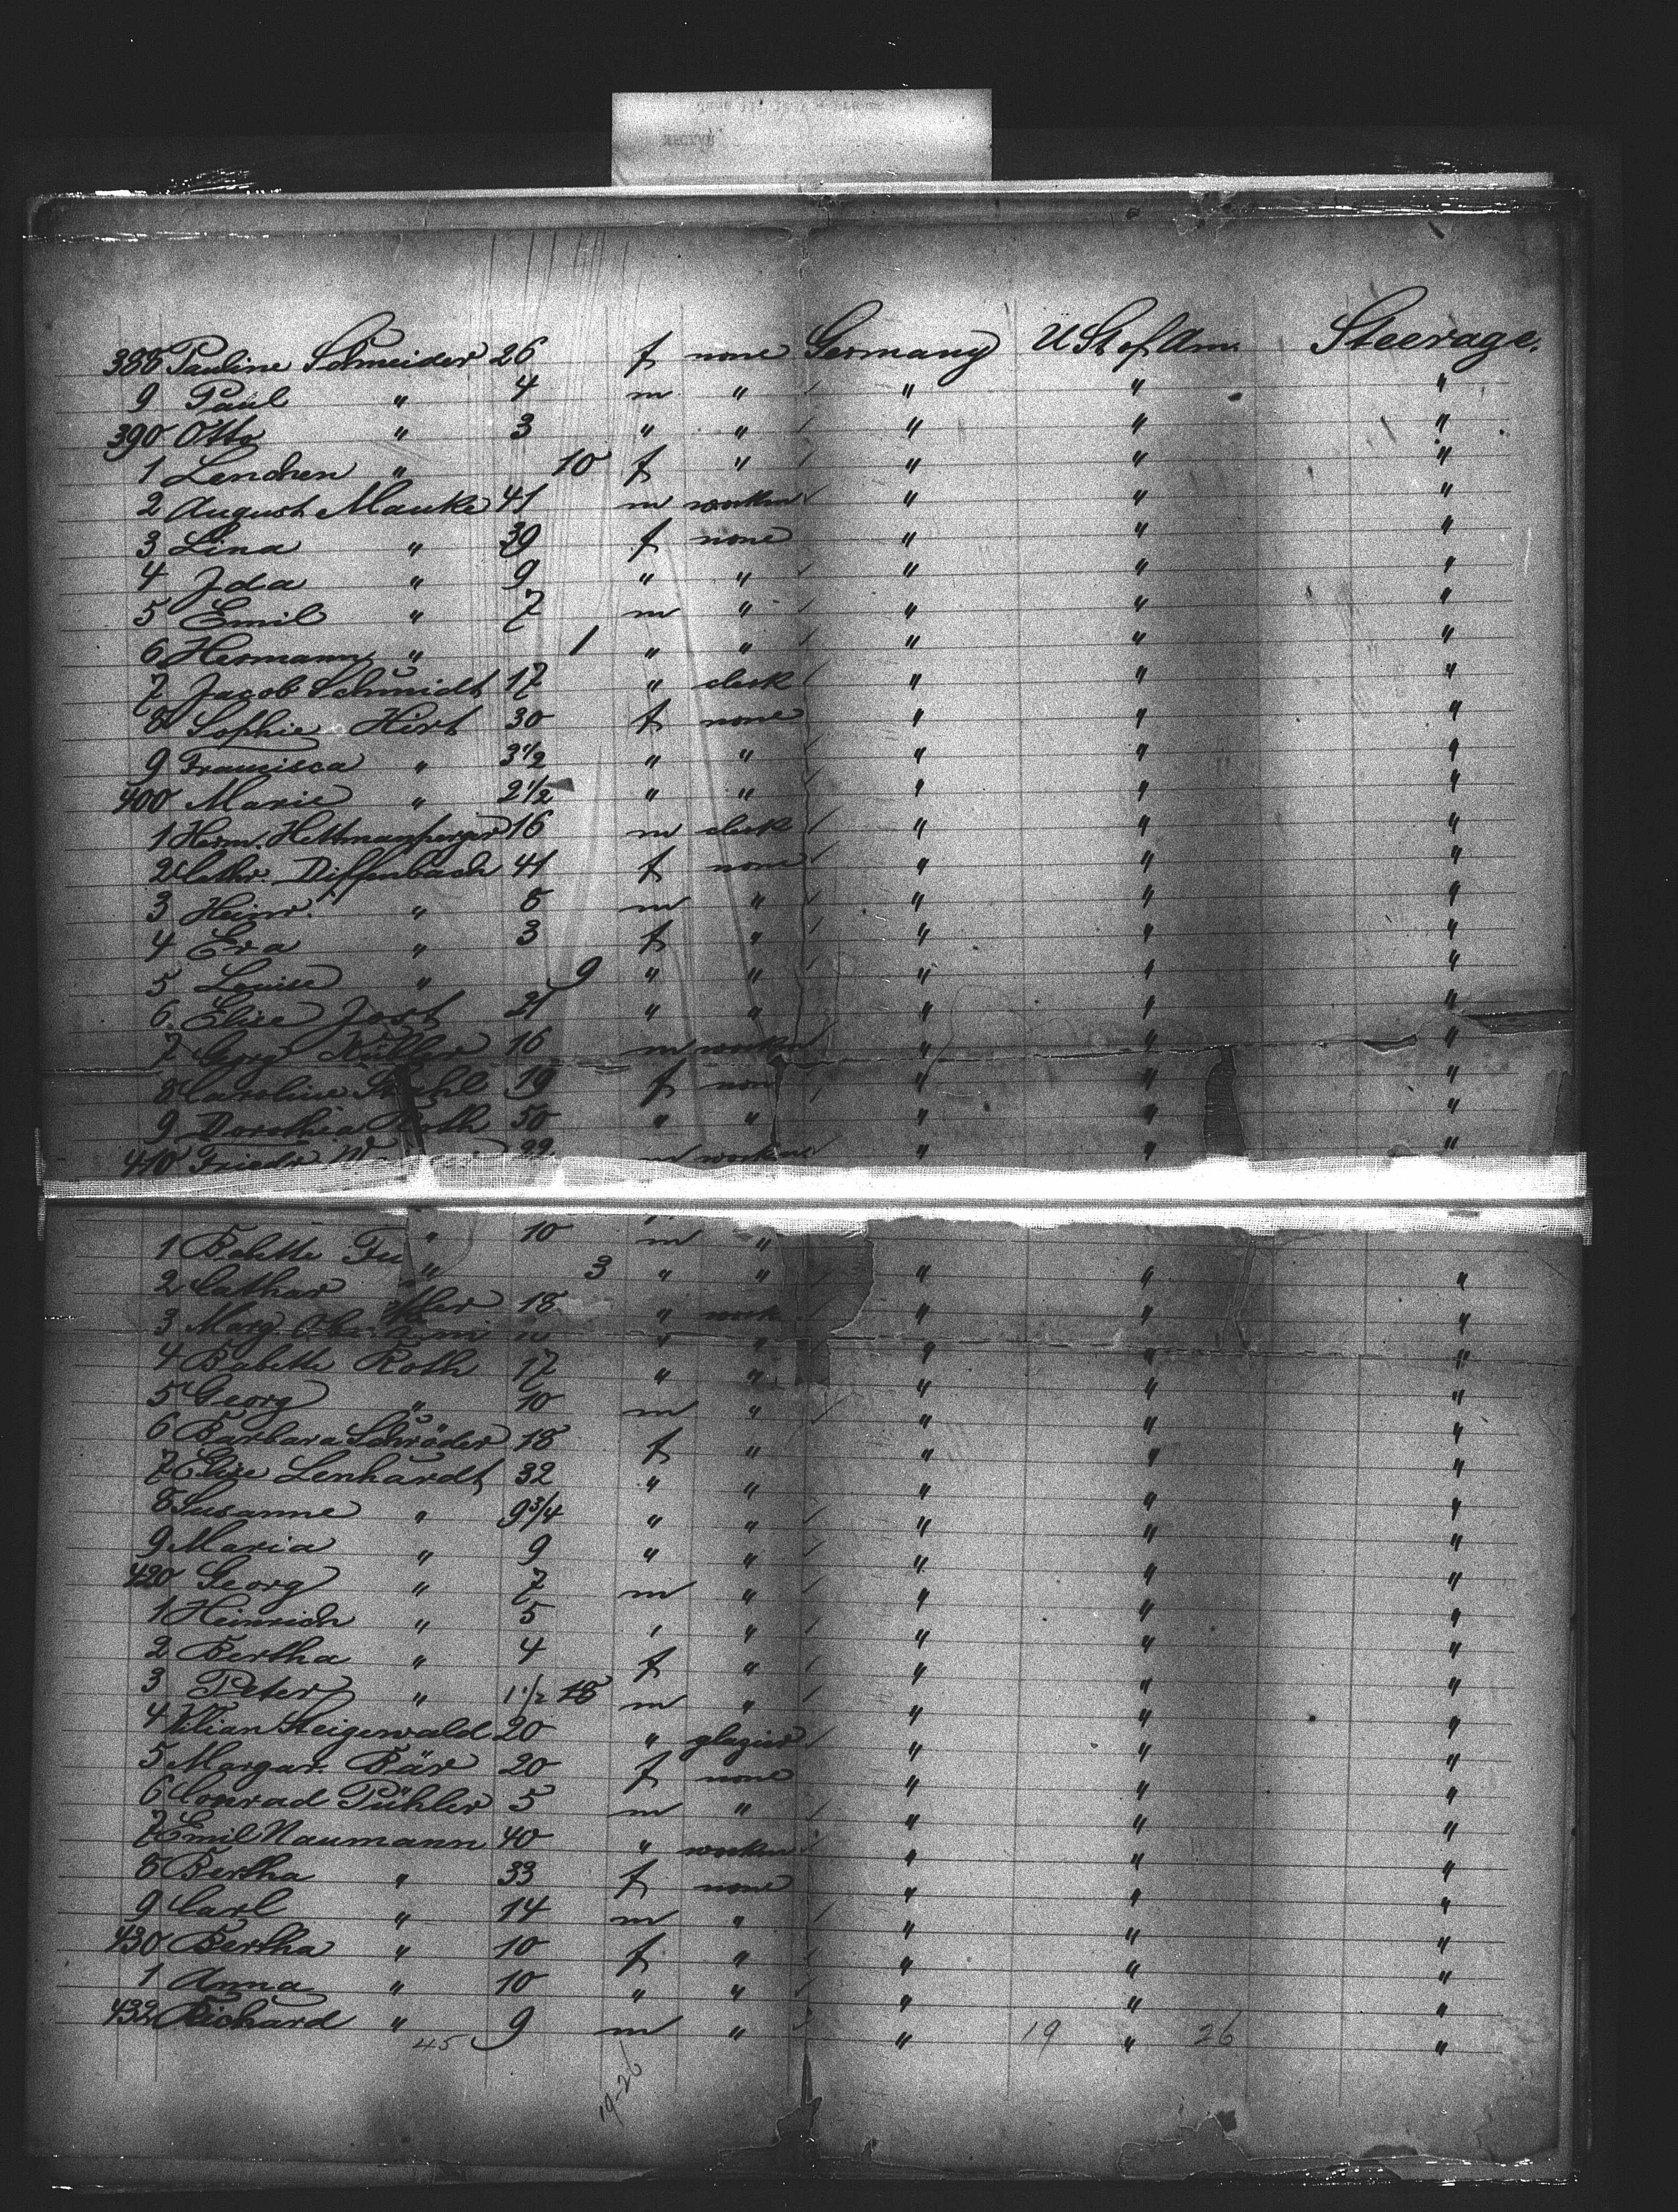 388 Pauline Schneider 26 f none Germany U St of Am. Steerage.
9 Paul " 4 m " " " "
390 Otto " 3 " " " " "
1 Lenchen " 10 f " " " "
2 August Mauke 41 m workm " " "
3 Lina " 39 f none " " "
4 Ida " 9 " " " " "
5 Emil " 7 m " " " "
6 Hermann " 1 " " " " "
7 Jacob Schmidt 17 " clerk " " "
8 Sophie Hirt 30 f none " " "
9 Francisca " 3 1/2 " " " " "
400 Marie " 2 1/2 " " " " "
1 Herm. Hettmansperger 16 m clerk " " "
2 Cathr. Diffenbach 41 f none " " "
3 Heinr. " 8 m " " " "
4 Eva " 3 f " " " "
5 Louise " 9 " " " " "
6 Elise Jost 21 " " " " "
7 Georg 16 m workm " " "
8 Caroline 19 f non " " "
9 Dorothea Roth 50 " " " " "
410 Friedr. W 22 m workm " " "
" 10 m "
1 Babette Fu " 3 " " " " "
2 Cathar ller 18 " work " " "
3 Marg. " " " " "
4 Babette Roth 17 " " " " "
5 Georg " 10 m " " " "
6 Barbara Schröder 18 f " " " "
7 Elise Lenhardt 32 " " " " "
8 Susanne " 9 3/4 " " " " "
9 Maria " 9 " " " " "
420 Georg " 7 m " " " "
1 Heinrich " 5 " " " " "
2 Bertha " 4 f " " " "
3 Peter " 1 1/2 18 m " " " "
4 Kilian Steigerwald 20 " glazier " " "
5 Margar. Bär 20 f none " " "
6 Conrad Pühler 5 m " " " "
7 Emil Naumann 40 " workm " " "
8 Bertha " 33 f none " " "
9 Carl " 14 m " " " "
430 Bertha " 10 f " " " "
1 Anna " 10 " " " " "
432 Richard " 9 m " " 19 " 26 "
45
19-26